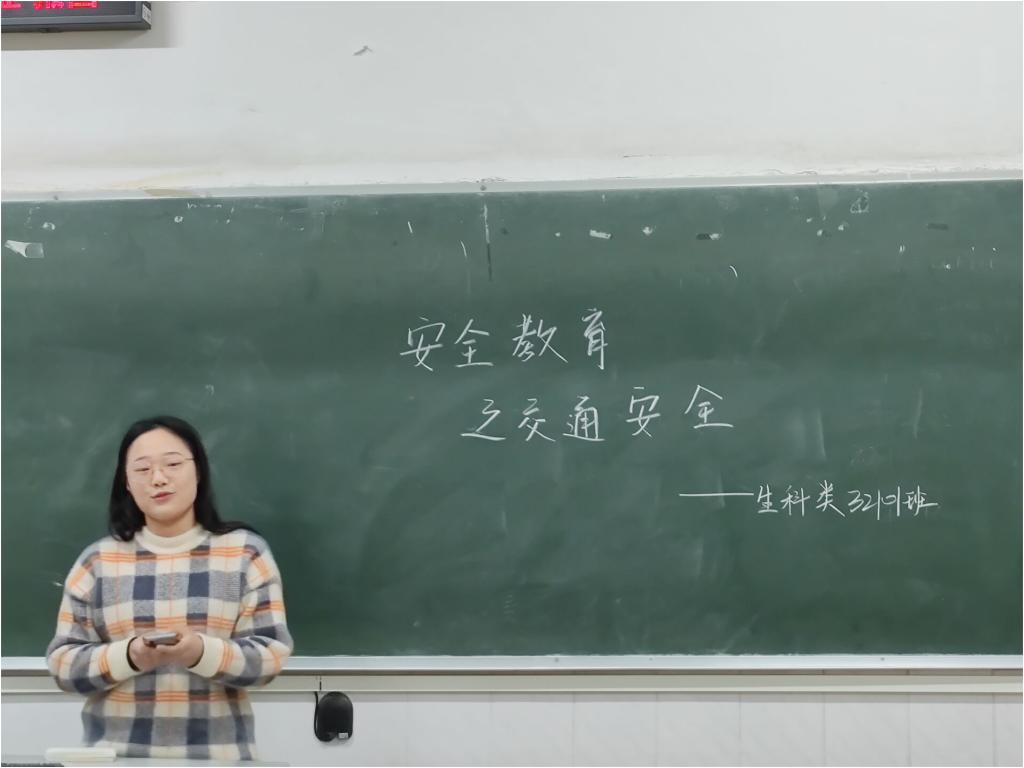 安全教育
之交通安全
——生科类32101班